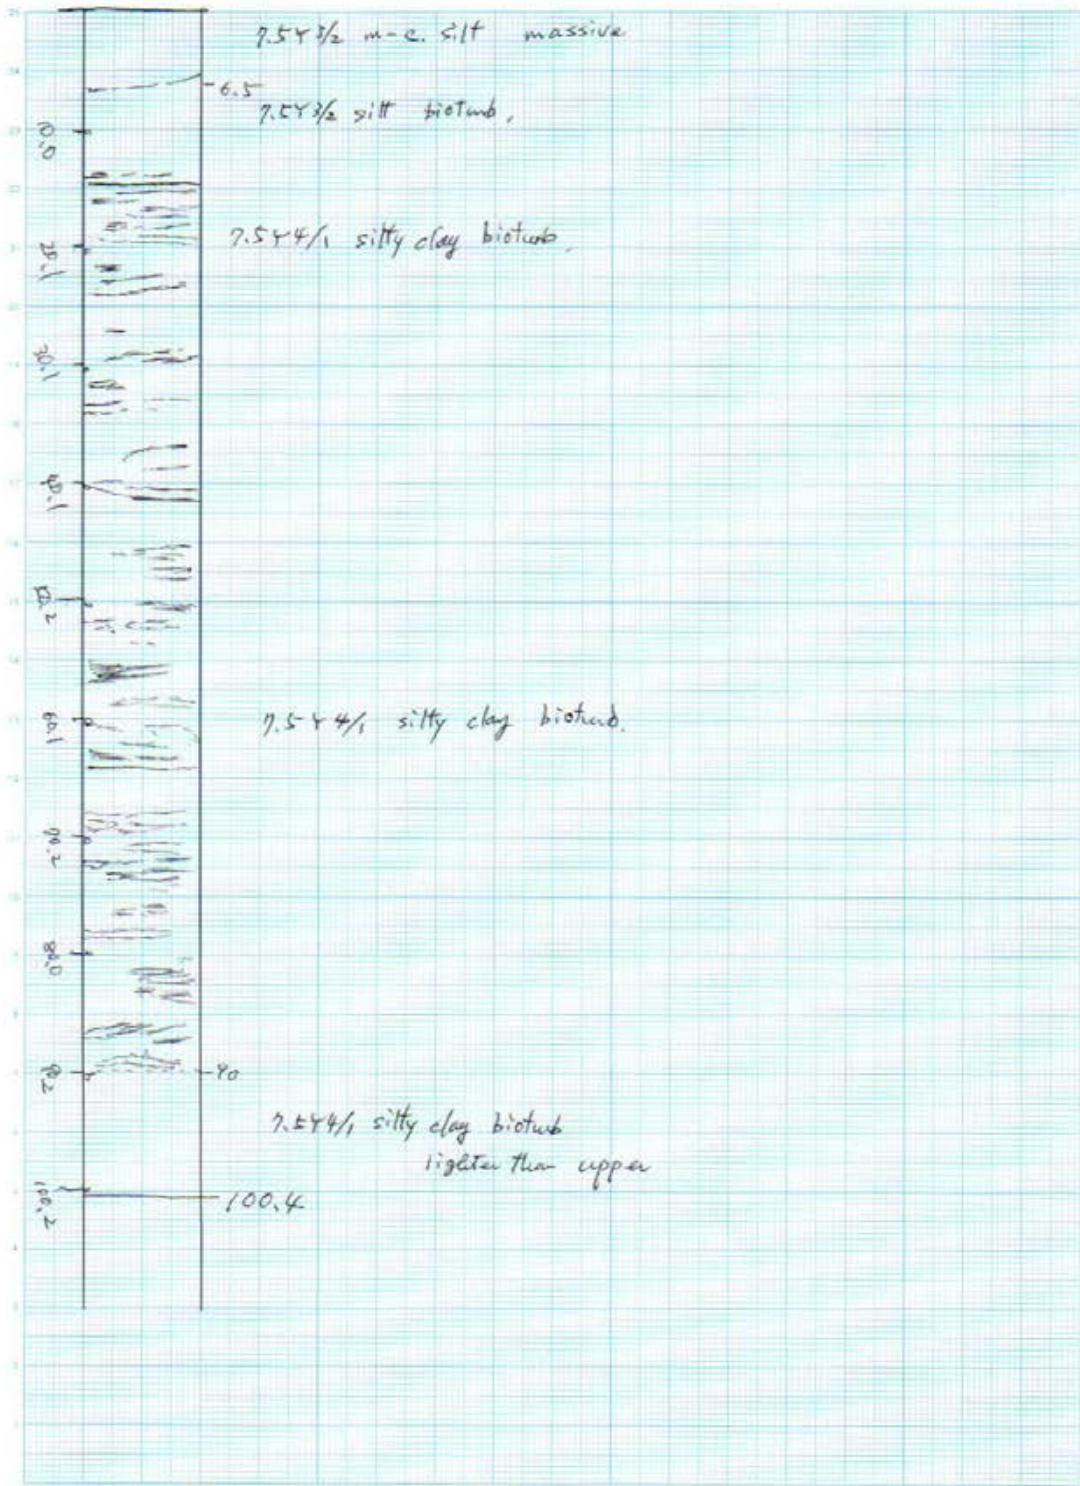 7.5Y 3/2 m-c. silt massive
6.5
7.5Y 3/2 silt bioturb.
10.0
7.5Y 4/1 silty clay bioturb.
20.1
30.1
40.1
50.2
7.5Y 4/1 silty clay bioturb.
60.1
70.2
80.0
90
90.2
7.5Y 4/1 silty clay bioturb
lighter than upper
100.2
100.4